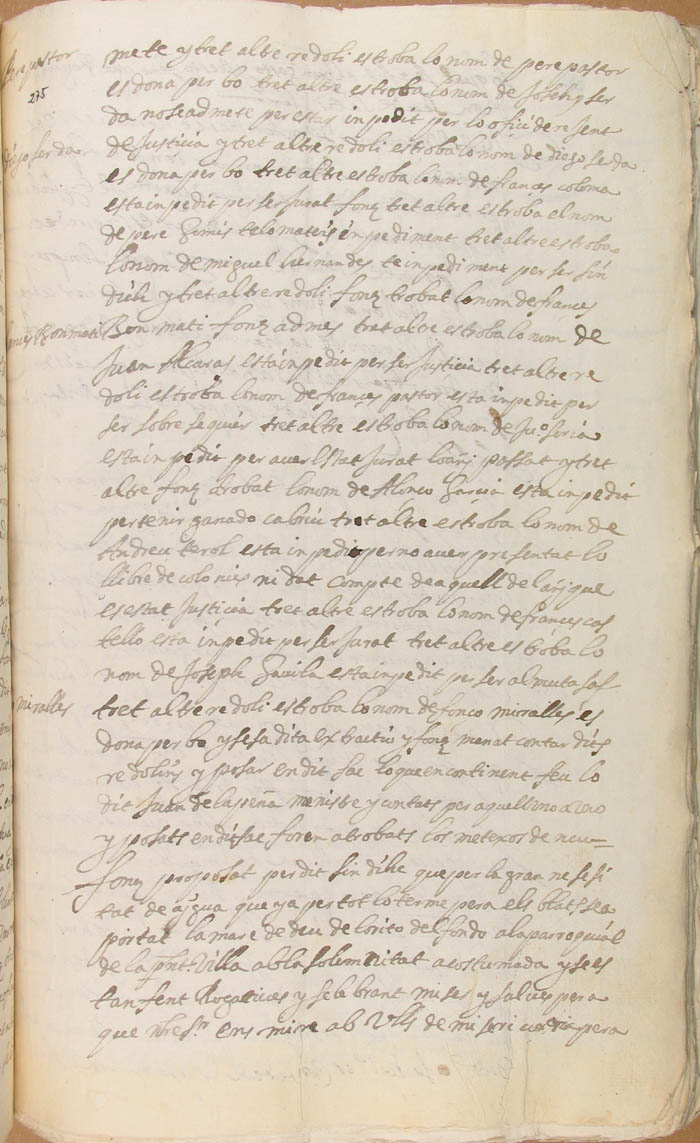 Pere pastor
275
mete y tret altre redoli estroba lo nom de pere pastor
es dona per bo tret altre estroba lo nom de Joseph ser
da nose admete per estar inpedit per lo ofici de resent
Diego serda
de Justicia y tret altre redoli estroba lo nom de diego serda
es dona per bo tret altre estroba lo nom de frances coloma
esta inpedit per ser Jurat fonq tret altre estroba el nom
de pere te lo mateis inpediment tret altre estroba
lo nom de miguel hernandes te inpediment per ser sin
dich y tret altre redoli fonq trobat lo nom de frances
Bonmati
Bonmati fonq admes tret altre estroba lo nom de
Juan Alcaras esta inpedit per ser Justicia tret altre re
doli estroba lo nom de frances pastor esta inpedit per
ser sobresequier tret altre estroba lo nom de Juº soria
esta inpedit per aver estat Jurat lo añ passat y tret
altre fonq trobat lo nom de Alonço Garcia esta inpedit
per tenir ganado cabriu tret altre estroba lo nom de
Andreu terol esta inpedit per no aver presentat lo
llibre de colonies ni dat compte de aquell del añ que
es estat Justicia tret altre estroba lo nom de frances cas
tello esta inpedit per ser Jurat tret altre estroba lo
nom de Joseph Davila esta inpedit per ser almutasaf
miralles
tret altre redoli estroba lo nom de fonco miralles es
dona per bo y sesa dita extractio y fonq manat contar dits
redolins y posar en dit sac lo que en continent feu lo
dit Juan de la peña menistre y contats per aquell uno a uno
y posats en dit sac foren atrobats los metexos de nou
fonq proposat per dit sindich que per la gran nesesi
tat de aygua que ya per tot lo terme pera els blats sea
portat la mare de deu de lorito del fondo a la parroquial
de la pnt. Villa ab la solemnitat acostumada y se es
tan fent Rogatives y selebrant mises y salves pera
que nre Sr. ens mire ab Ulls de misericordia pera